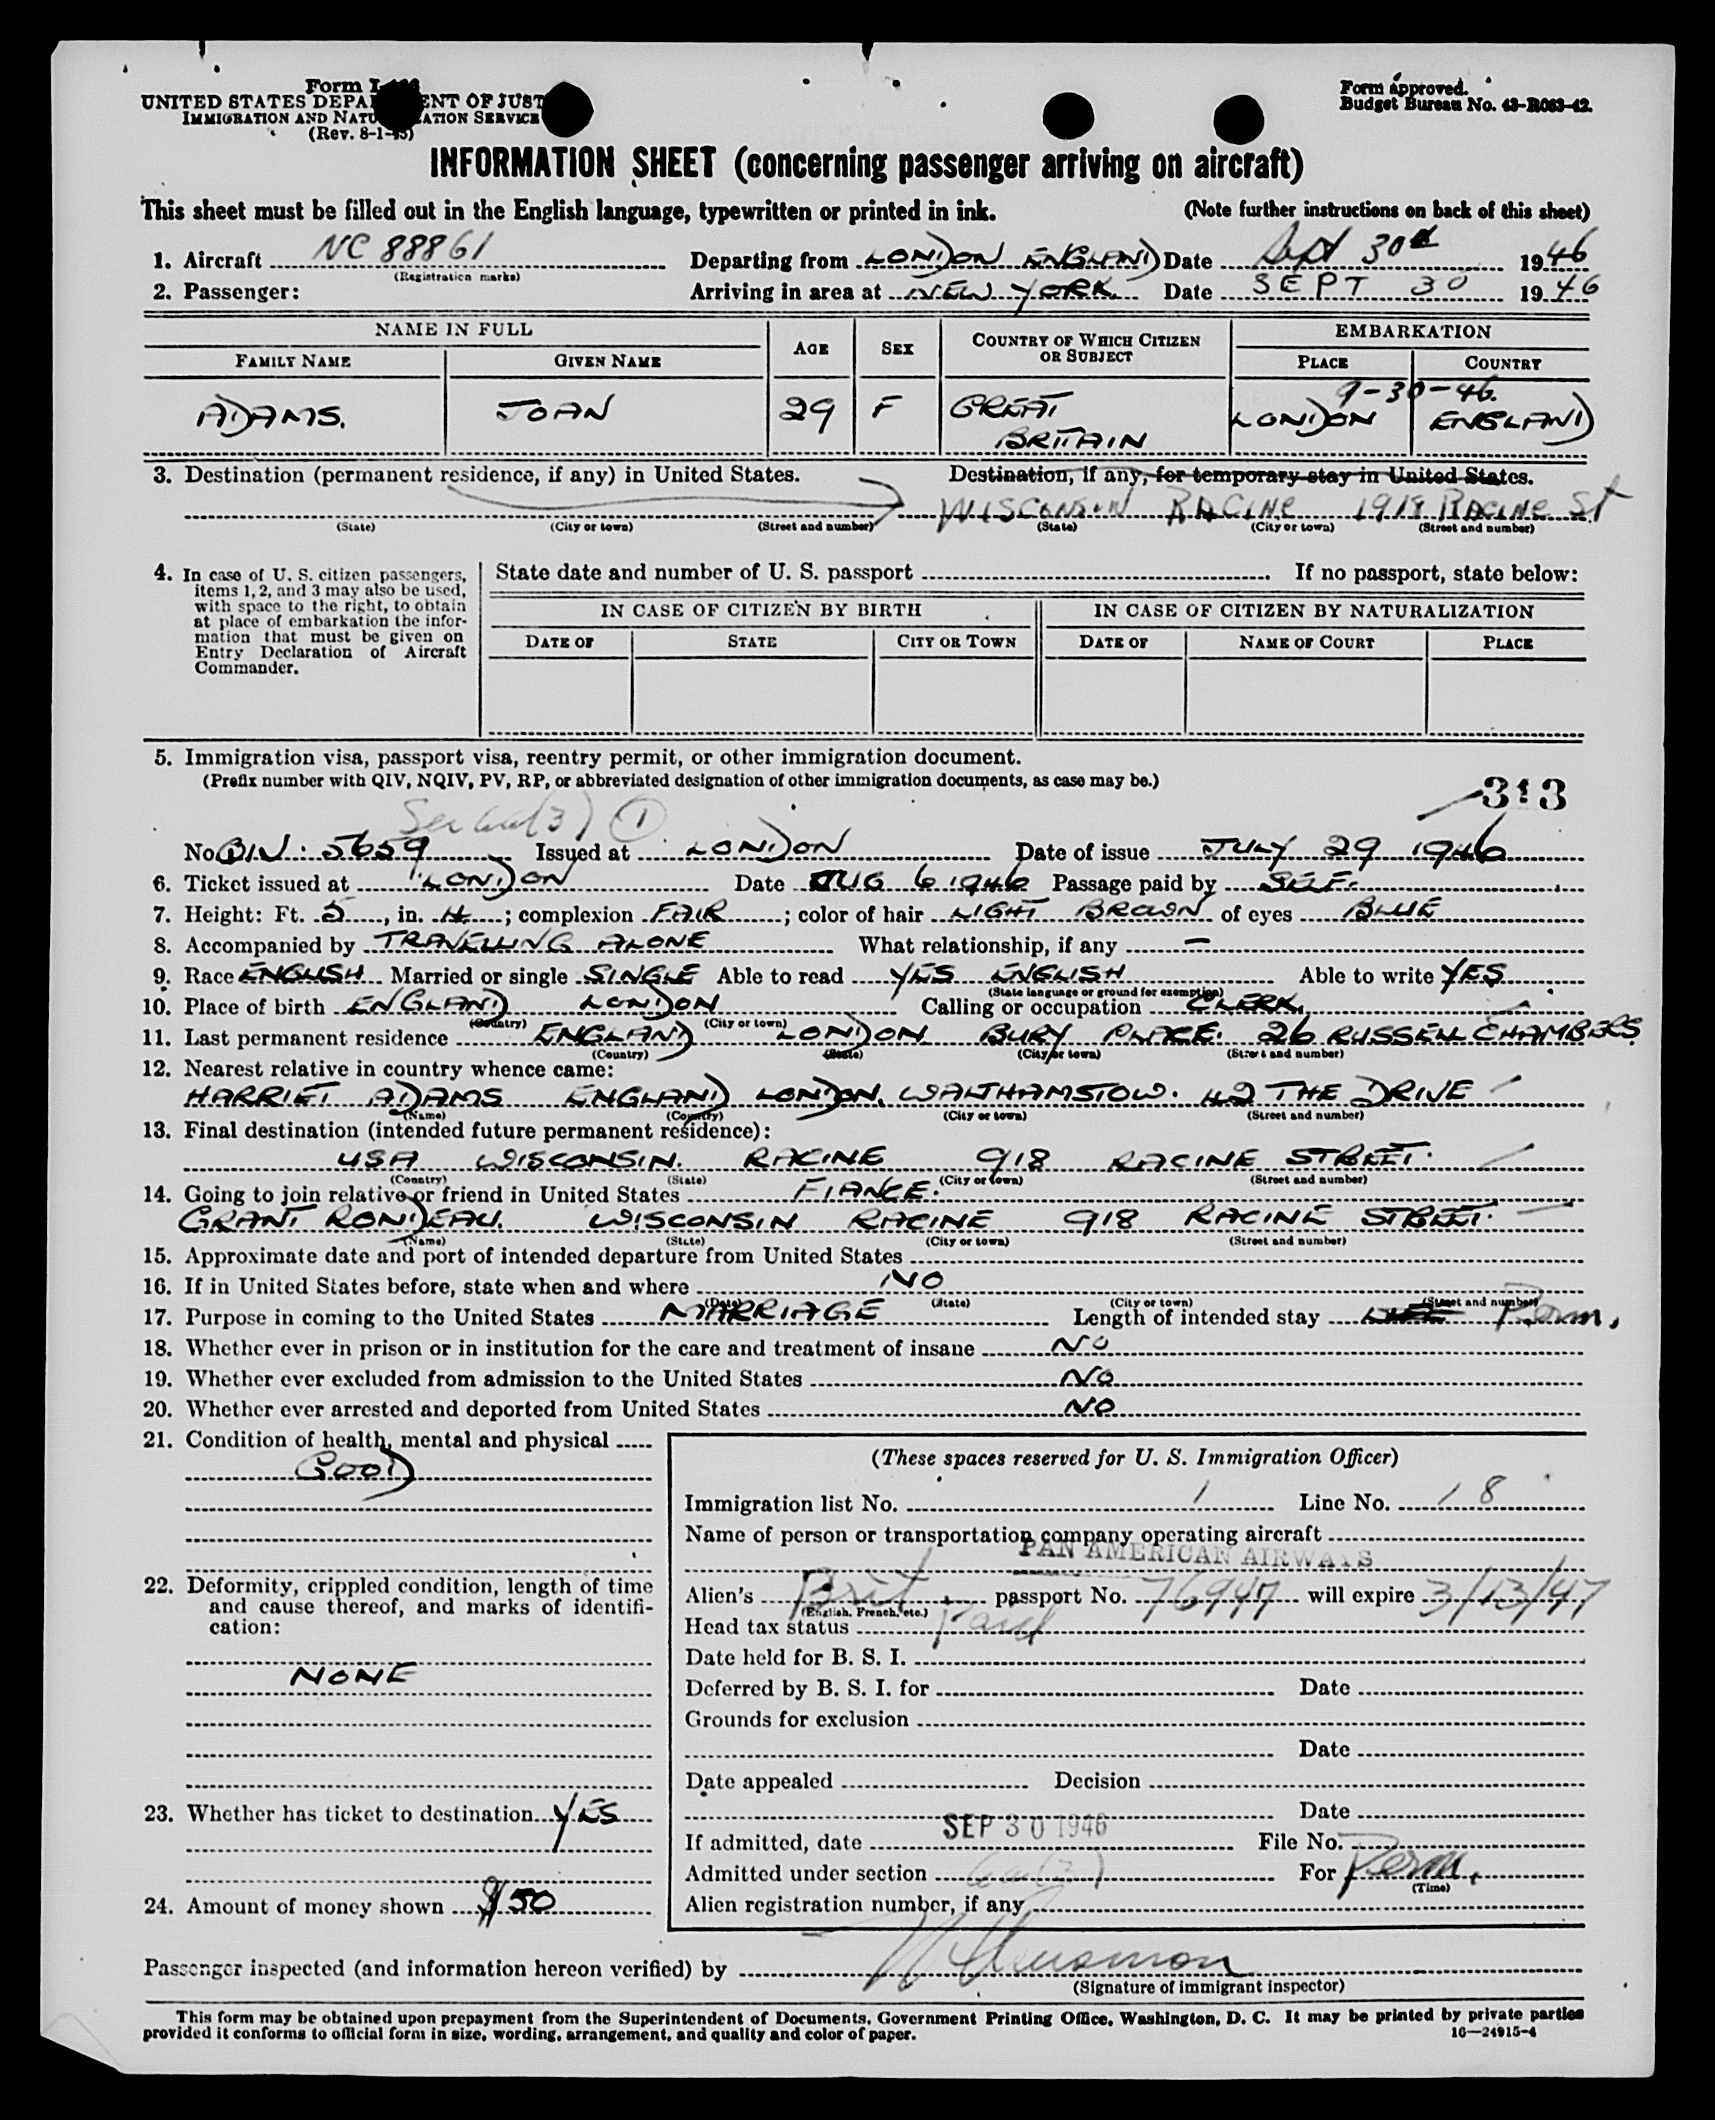 Form I-
UNITED STATES DEPA ENT OF JUST
IMMIGRATION AND NATU ATION SERVICE
(Rev. 8-1-45)
Form approved.
Budget Bureau No. 43-R063-42.
INFORMATION SHEET (concerning passenger arriving on aircraft)
This sheet must be filled out in the English language, typewritten or printed in ink. (Note further instructions on back of this sheet)
1. Aircraft NC 88861 Departing from LONDON ENGLAND Date Sept 30th 1946
(Registration marks)
2. Passenger: Arriving in area at NEW YORK. Date SEPT 30 1946
NAME IN FULL AGE SEX COUNTRY OF WHICH CITIZEN OR SUBJECT EMBARKATION
FAMILY NAME GIVEN NAME PLACE COUNTRY
9-30-46.
ADAMS. JOAN 29 F GREAT BRITAIN LONDON ENGLAND
3. Destination (permanent residence, if any) in United States. Destination, if any, for temporary stay in United States.
WISCONSIN RACINE 1918 RACINE St
(State) (City or town) (Street and number) (State) (City or town) (Street and number)
4. In case of U. S. citizen passengers, items 1, 2, and 3 may also be used, with space to the right, to obtain at place of embarkation the information that must be given on Entry Declaration of Aircraft Commander.
State date and number of U. S. passport . If no passport, state below:
IN CASE OF CITIZEN BY BIRTH IN CASE OF CITIZEN BY NATURALIZATION
DATE OF STATE CITY OR TOWN DATE OF NAME OF COURT PLACE
5. Immigration visa, passport visa, reentry permit, or other immigration document.
(Prefix number with QIV, NQIV, PV, RP, or abbreviated designation of other immigration documents, as case may be.)
313
(3) 1
No. QIV. 5659 Issued at LONDON Date of issue JULY 29 1946
6. Ticket issued at LONDON Date AUG 6 1946 Passage paid by SELF.
7. Height: Ft. 5, in. 4; complexion FAIR; color of hair LIGHT BROWN of eyes BLUE
8. Accompanied by TRAVELLING ALONE What relationship, if any —
9. Race ENGLISH Married or single SINGLE Able to read YES ENGLISH Able to write YES
(State language or ground for exemption)
10. Place of birth ENGLAND LONDON Calling or occupation CLERK.
(Country) (City or town)
11. Last permanent residence ENGLAND LONDON BURY PLACE. 26 RUSSELL CHAMBERS
(Country) (State) (City or town) (Street and number)
12. Nearest relative in country whence came:
HARRIET ADAMS ENGLAND LONDON. WALTHAMSTOW. 42 THE DRIVE
(Name) (Country) (City or town) (Street and number)
13. Final destination (intended future permanent residence):
USA WISCONSIN. RACINE 918 RACINE STREET.
(Country) (State) (City or town) (Street and number)
14. Going to join relative or friend in United States FIANCE.
GRANT RONDEAU. WISCONSIN RACINE 918 RACINE STREET.
(Name) (State) (City or town) (Street and number)
15. Approximate date and port of intended departure from United States
16. If in United States before, state when and where NO
(Date) (State) (City or town) (Street and number)
17. Purpose in coming to the United States MARRIAGE Length of intended stay Perm.
18. Whether ever in prison or in institution for the care and treatment of insane NO
19. Whether ever excluded from admission to the United States NO
20. Whether ever arrested and deported from United States NO
21. Condition of health, mental and physical
GOOD
22. Deformity, crippled condition, length of time and cause thereof, and marks of identification:
NONE
23. Whether has ticket to destination YES
24. Amount of money shown $50
(These spaces reserved for U. S. Immigration Officer)
Immigration list No. 1 Line No. 18
Name of person or transportation company operating aircraft
PAN AMERICAN AIRWAYS
Alien's Brit. passport No. 76947 will expire 3/13/47
(English, French, etc.)
Head tax status Paid
Date held for B. S. I.
Deferred by B. S. I. for Date
Grounds for exclusion
Date
Date appealed Decision
Date
If admitted, date SEP 30 1946 File No.
Admitted under section For Perm.
(Time)
Alien registration number, if any
Passenger inspected (and information hereon verified) by
(Signature of immigrant inspector)
This form may be obtained upon prepayment from the Superintendent of Documents, Government Printing Office, Washington, D. C. It may be printed by private parties
provided it conforms to official form in size, wording, arrangement, and quality and color of paper. 16—24915-4